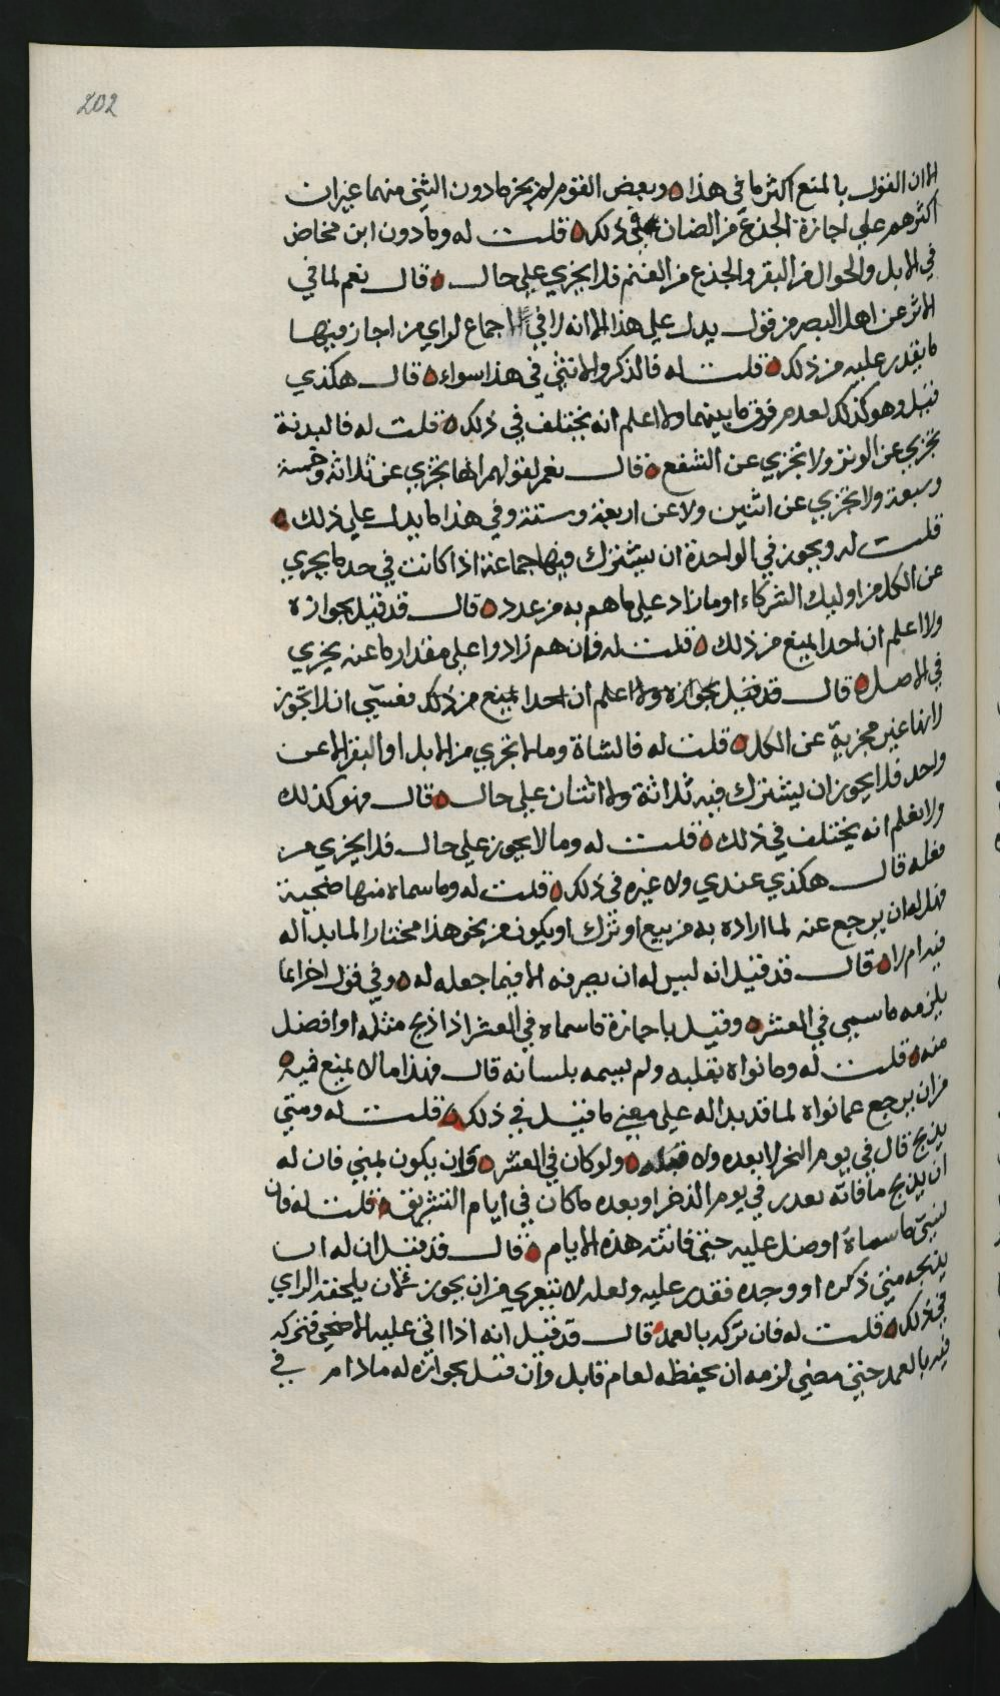 202
الا ان القول بالمنع اكثر ما في هذا ه وبعض القوم لم يجز ما دون الثني منهما غير ان
اكثرهم علي اجازة الجذع من الضان في ذلك ه قلت له وما دون ابن مخاض
في الابل والحوال من البقر والجذع من الغنم فلا يجزي علي حال ه قال نعم لما في
الاثر عن اهل البصر من قول يدل علي هذا الا انه لا في الاجماع لراي من اجاز فيها
ما يقدر عليه من ذلك ه قلت له فالذكر والانثي في هذا سواء ه قال هكذي
قيل وهو كذلك لعدم فرق ما بينهما ولا اعلم انه يختلف في ذلك ه قلت له فالبدنة
تجزي عن الوتر ولا تجزي عن الشفع ه قال نعم لقولهم انها تجزي عن ثلاثة وخمسة
وسبعة ولا تجزي عن اثنين ولا عن اربعة وستة وفي هذا ما يدل علي ذلك ه
قلت له ويجوز في الواحدة ان يشترك فيها جماعة اذا كانت في حد ما يجزي
عن الكل من اوليك الشركاء او ما زاد علي ما هم به من عدد ه قال قد قيل بجوازه
ولا اعلم ان احدا يمنع من ذلك ه قلت له فان هم زادوا علي مقدار ما عنه يجزي
في الاصل ه قال قد قيل بجوازه ولا اعلم ان احدا يمنع من ذلك فعسي ان لا تجوز
لانها غير مجزية عن الكل ه قلت له فالشاة وما لا تجزي من الابل او البقر الا عن
واحد فلا يجوز ان يشترك فيه ثلاثة ولا اثنان علي حال ه قال فهو كذلك
ولا نعلم انه يختلف في ذلك ه قلت له وما لا يجوز علي حال فلا يجزي من
فعله قال هكذي عندي ولا غيره في ذلك ه قلت له وما سماه منها ضحية
فهل له ان يرجع عنه لما اراده به من بيع او ترك او يكون من نحو هذا مختارا لما بدا له
فيه ام لا ه قال قد قيل انه ليس له ان يصرفه الا فيما جعله له ه وفي قول اخر انما
يلزمه ما سمي في العشر ه وقيل باجازة ما سماه في العشر اذا ذبح مثله او افضل
منه ه قلت له وما نواه بقلبه ولم يسمه بلسانه قال فهذا ما لا يمنع فيه ه
من ان يرجع عما نواه لما قد بدا له علي معني ما قيل في ذلك ه قلت له ومتي
يذبح قال في يوم النحر لا بعده ولا قبله ه ولو كان في العشر ه وان يكون بمني فان له
ان يذبح ما فاته بعدر في يوم النحر او بعده ما كان في ايام التشريق ه قلت له فان
نسي ما سماه او ضل عليه حتي فاتته هذه الايام ه قال قد قيل ان له ان
يذبحه متي ذكره او وجده فقدر عليه ولعله لا يتعري من ان يجوز لان يلحقه الراي
في ذلك ه قلت له فان تركه بالعمد قال قد قيل انه اذا اتي عليه الاضحي فتركه
فيه بالعمد حتي مضي لزمه ان يحفظه لعام قابل وان قيل بجوازه له ما دام في